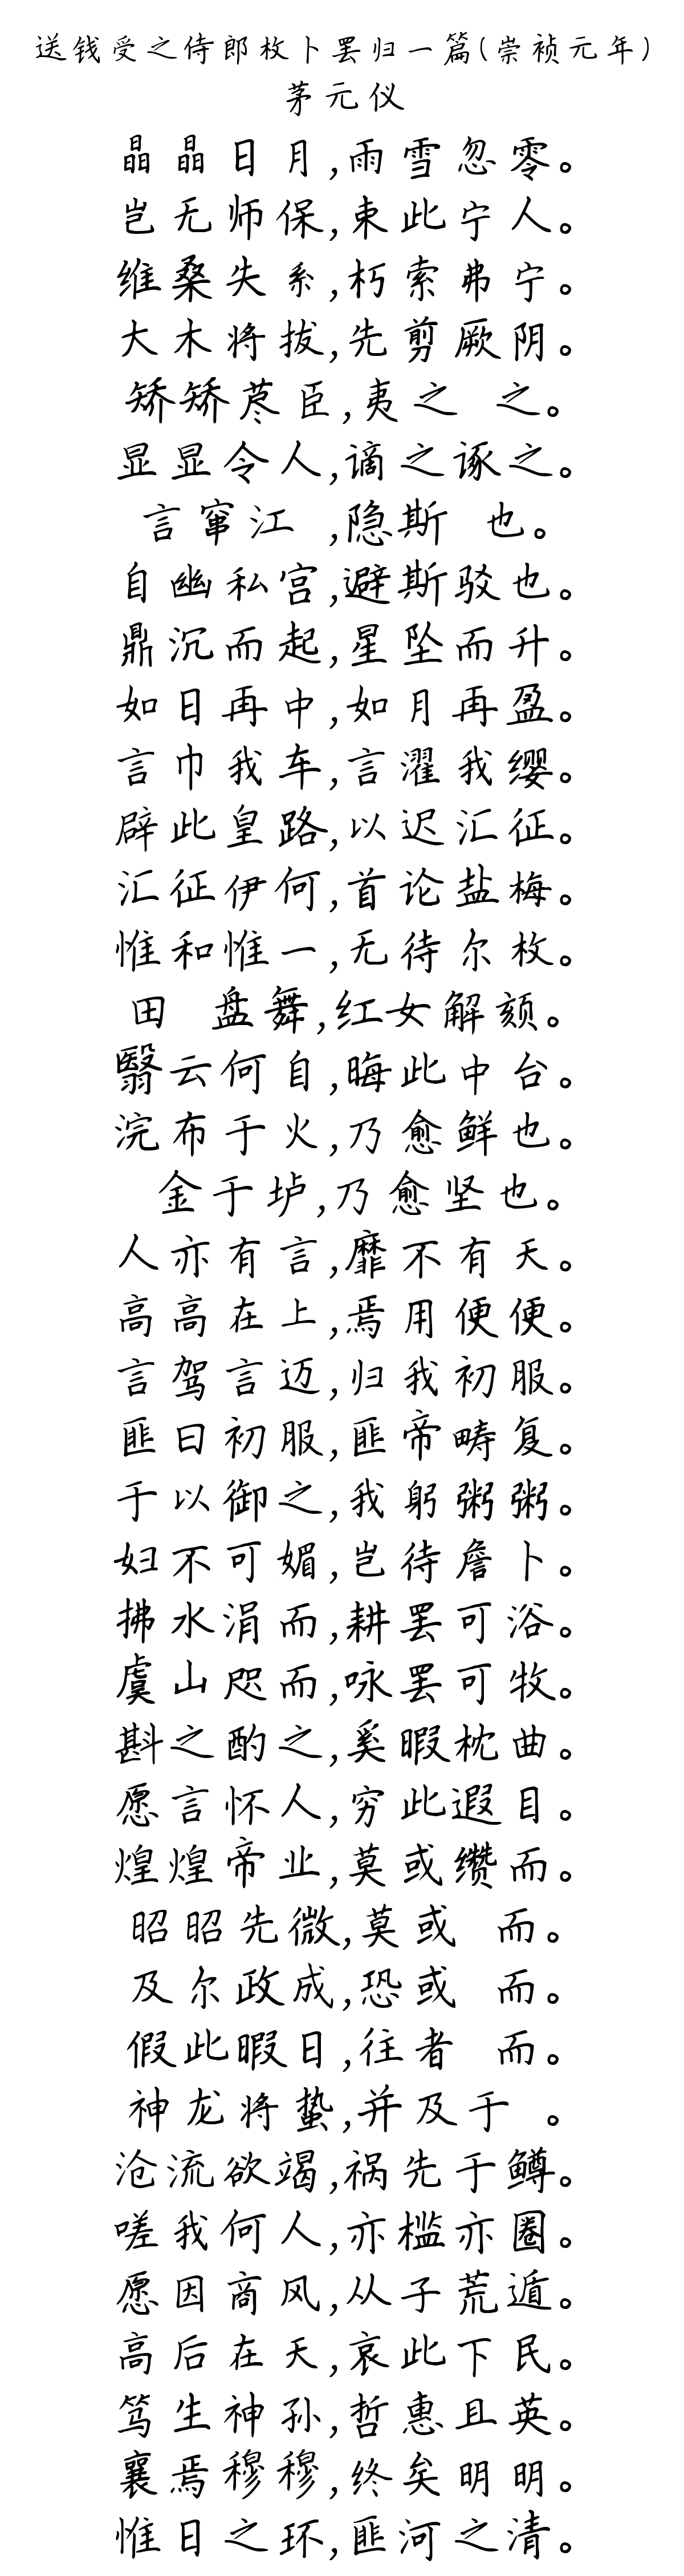 送钱受之侍郎枚卜罢归一篇(崇祯元年)
茅元仪
晶晶日月,雨雪忽零。
岂无师保,束此宁人。
维桑失系,朽索弗宁。
大木将拔,先剪厥阴。
矫矫荩臣,夷之 之。
显显令人,谪之诼之。
言窜江 ,隐斯 也。
自幽私宫,避斯驳也。
鼎沉而起,星坠而升。
如日再中,如月再盈。
言巾我车,言濯我缨。
辟此皇路,以迟汇征。
汇征伊何,首论盐梅。
惟和惟一,无待尔枚。
田 盘舞,红女解颏。
翳云何自,晦此中台。
浣布于火,乃愈鲜也。
金于垆,乃愈坚也。
人亦有言,靡不有天。
高高在上,焉用便便。
言驾言迈,归我初服。
匪曰初服,匪帝畴复。
于以御之,我躬粥粥。
妇不可媚,岂待詹卜。
拂水涓而,耕罢可浴。
虞山咫而,咏罢可牧。
斟之酌之,奚暇枕曲。
愿言怀人,穷此遐目。
煌煌帝业,莫或缵而。
昭昭先微,莫或 而。
及尔政成,恐或 而。
假此暇日,往者 而。
神龙将蛰,并及于 。
沧流欲竭,祸先于鳟。
嗟我何人,亦槛亦圈。
愿因商风,从子荒遁。
高后在天,哀此下民。
笃生神孙,哲惠且英。
襄焉穆穆,终矣明明。
惟日之环,匪河之清。